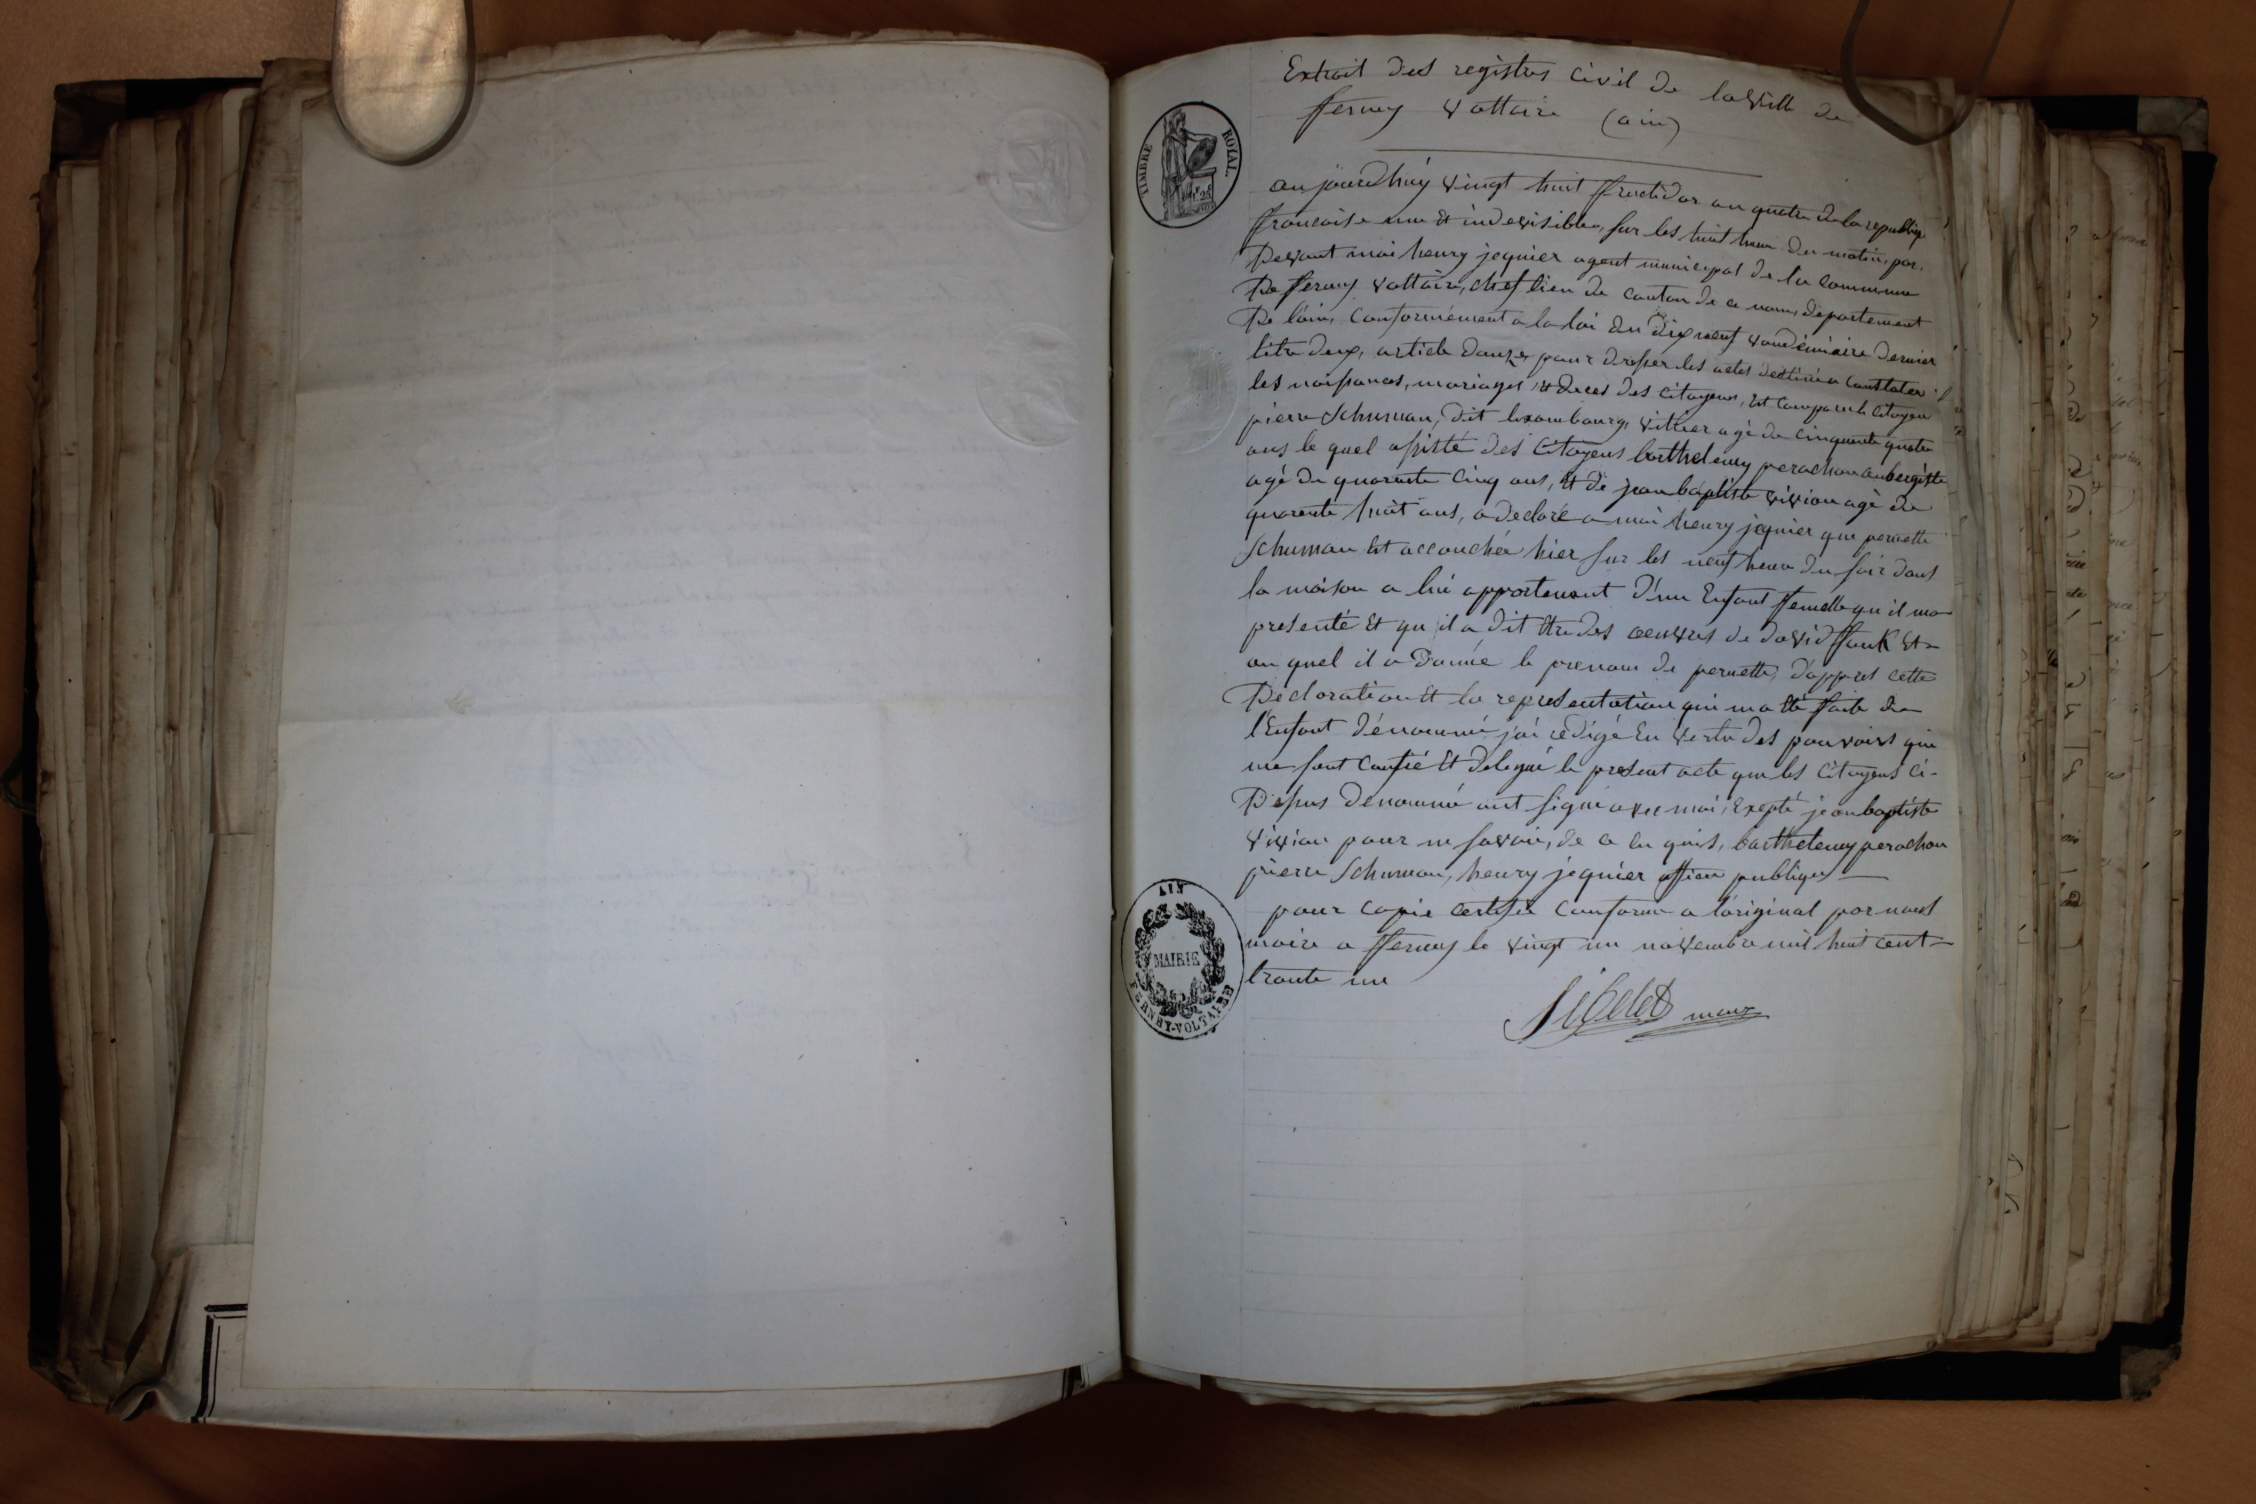 Extrait des registres Civil de la Ville de
fferney Voltaire (ain)
TIMBRE ROYAL
aujourdhuy Vingt huit ffructidor an quatre de la republiq
ffrancaise une et indevisible, sur les huit heur du matin, par
Devant moi henry jeqnier agent municipal de la Commune
De fferney Voltaire, chef lieu de canton de ce nom, departement
De l'ain, Conformément a la loi du Dix neuf vendémiaire dernier
titre deux, article Douze, pour dresser les actes destiné a Constater
les naissances, mariages et deces des Citoyens, Est Comparu le Citoyen
pierre Schuman, Dit luxembourg, Vitrier agé de cinquante quatre
ans le quel assisté des Citoyens barthelemy perachon aubergiste
agé de quarante Cinq ans, et de jean baptiste vivian agé de
quarente huit ans, a declaré a moi henry jeqnier que pernette
Schuman Est accouchée hier sur les neuf heur du soir dans
la maison a lui appartenant d'un Enfant ffemelle qu'il ma
presenté Et qu'il a Dit Etre des oeuvres de david ffauk Et
au quel il a Donné le prenom de pernette, d'appres cette
Declaration Et la representation qui ma Eté faite de
l'Enfant dénommé j'ai rédigé En Vertu des pouvoirs qui
me sont Confié Et delegué le present acte que les Citoyens Ci-
Dessus denommé ont signé avec moi, Exepté jean baptiste
Vivian pour ne savoir, de ce enquis, barthelemy perachon
pierre Schuman, henry jeqnier officier publique
pour Copie Certifié Conforme a l'original par nous
maire a fferney le Vingt un novembre mil huit Cent
trente un
AIN
MAIRIE
FERNEY-VOLTAIRE
maire